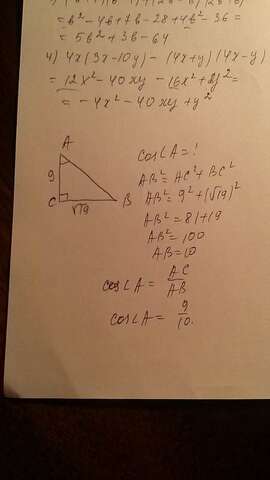 = b² - 4b + 4b - 28 + 4b² - 36 =
= 5b² + 3b - 64
4) 4x(3x-10y) - (4x+y)(4x-y)
= 12x² - 40xy - 16x² + y² =
= -4x² - 40xy + y²
A
9
C
√19
B
cos∠A = ?
AB² = AC² + BC²
AB² = 9² + (√19)²
AB² = 81 + 19
AB² = 100
AB = 10
cos∠A = AC/AB
cos∠A = 9/10.